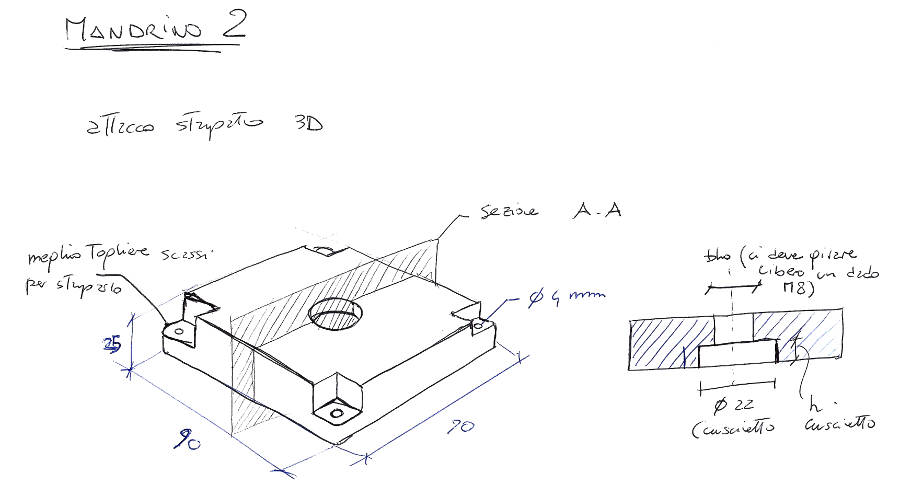 MANDRINO 2
attacco stampato 3D
sezione A-A
meglio togliere scassi
per stamparlo
φ 4 mm
25
90
90
(ci deve girare
libero un dado
M8)
φ 22
(cuscinetto
h.
cuscinetto